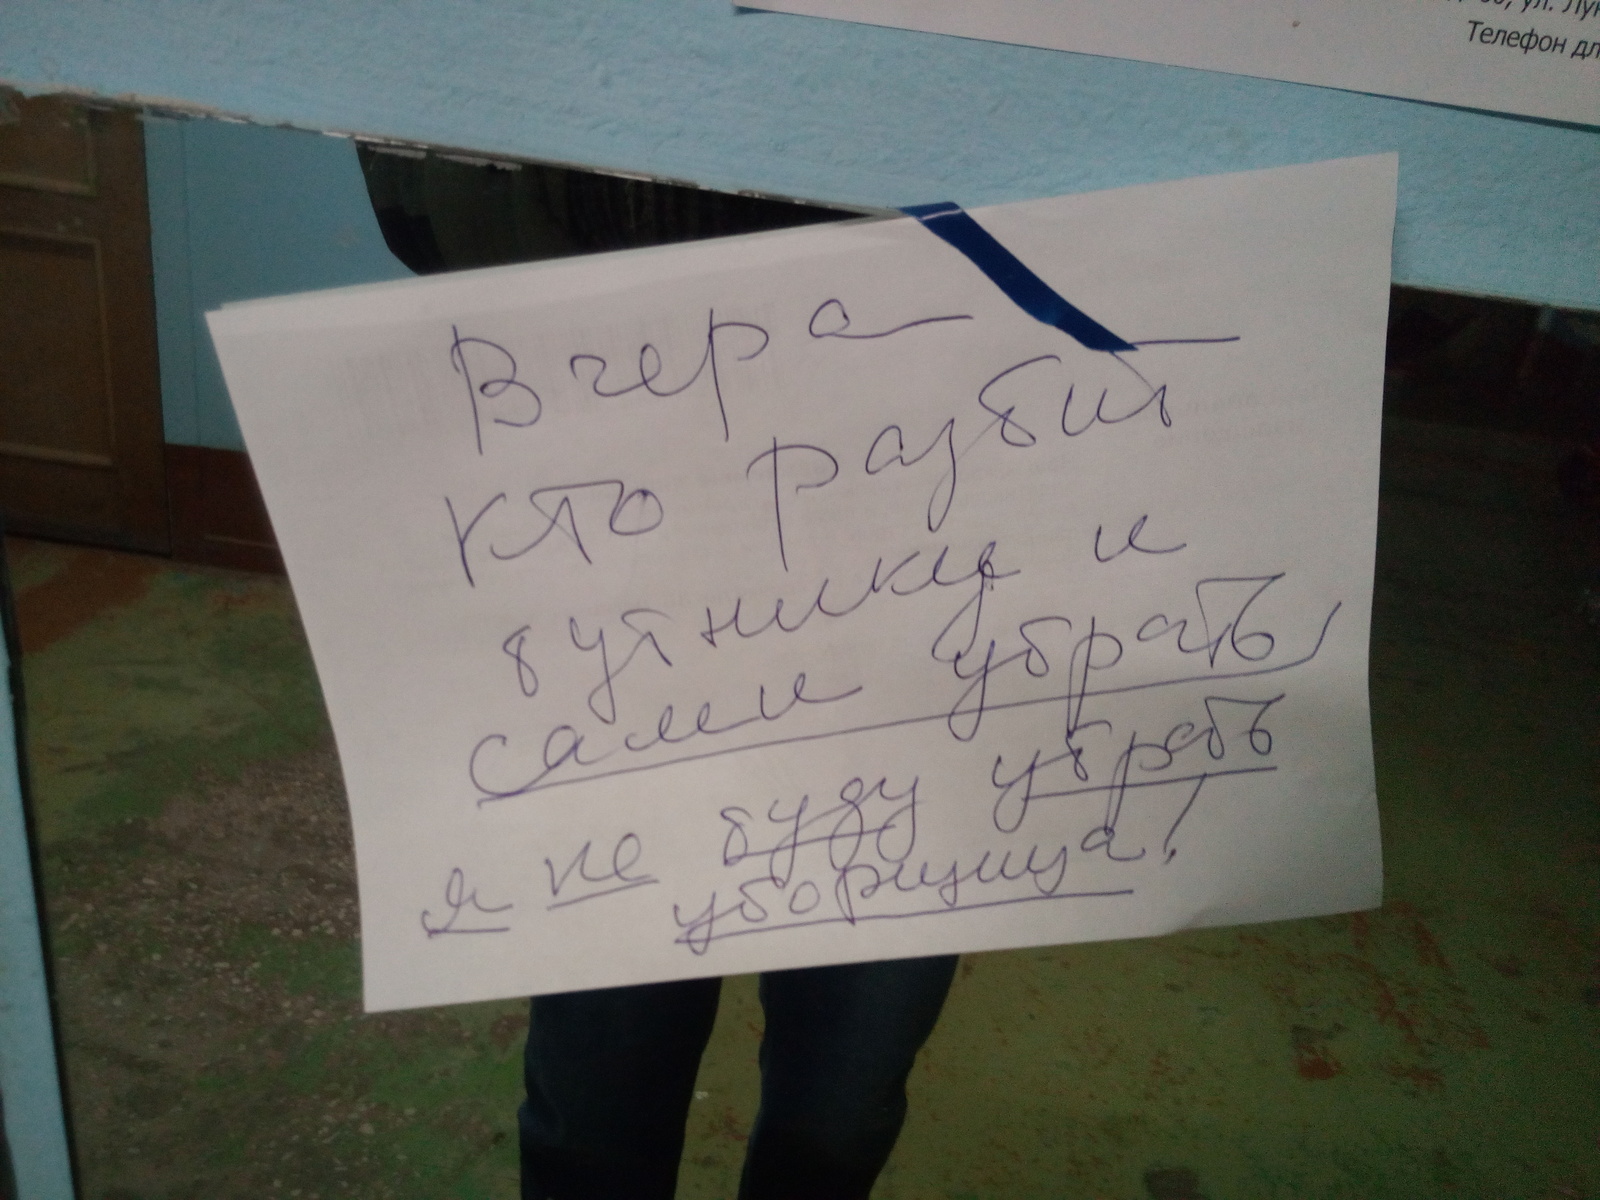 ул. Лу
Телефон дл
Вчера
кто разбит
бутылку и
сами убрать
я не буду убрать
уборщица!